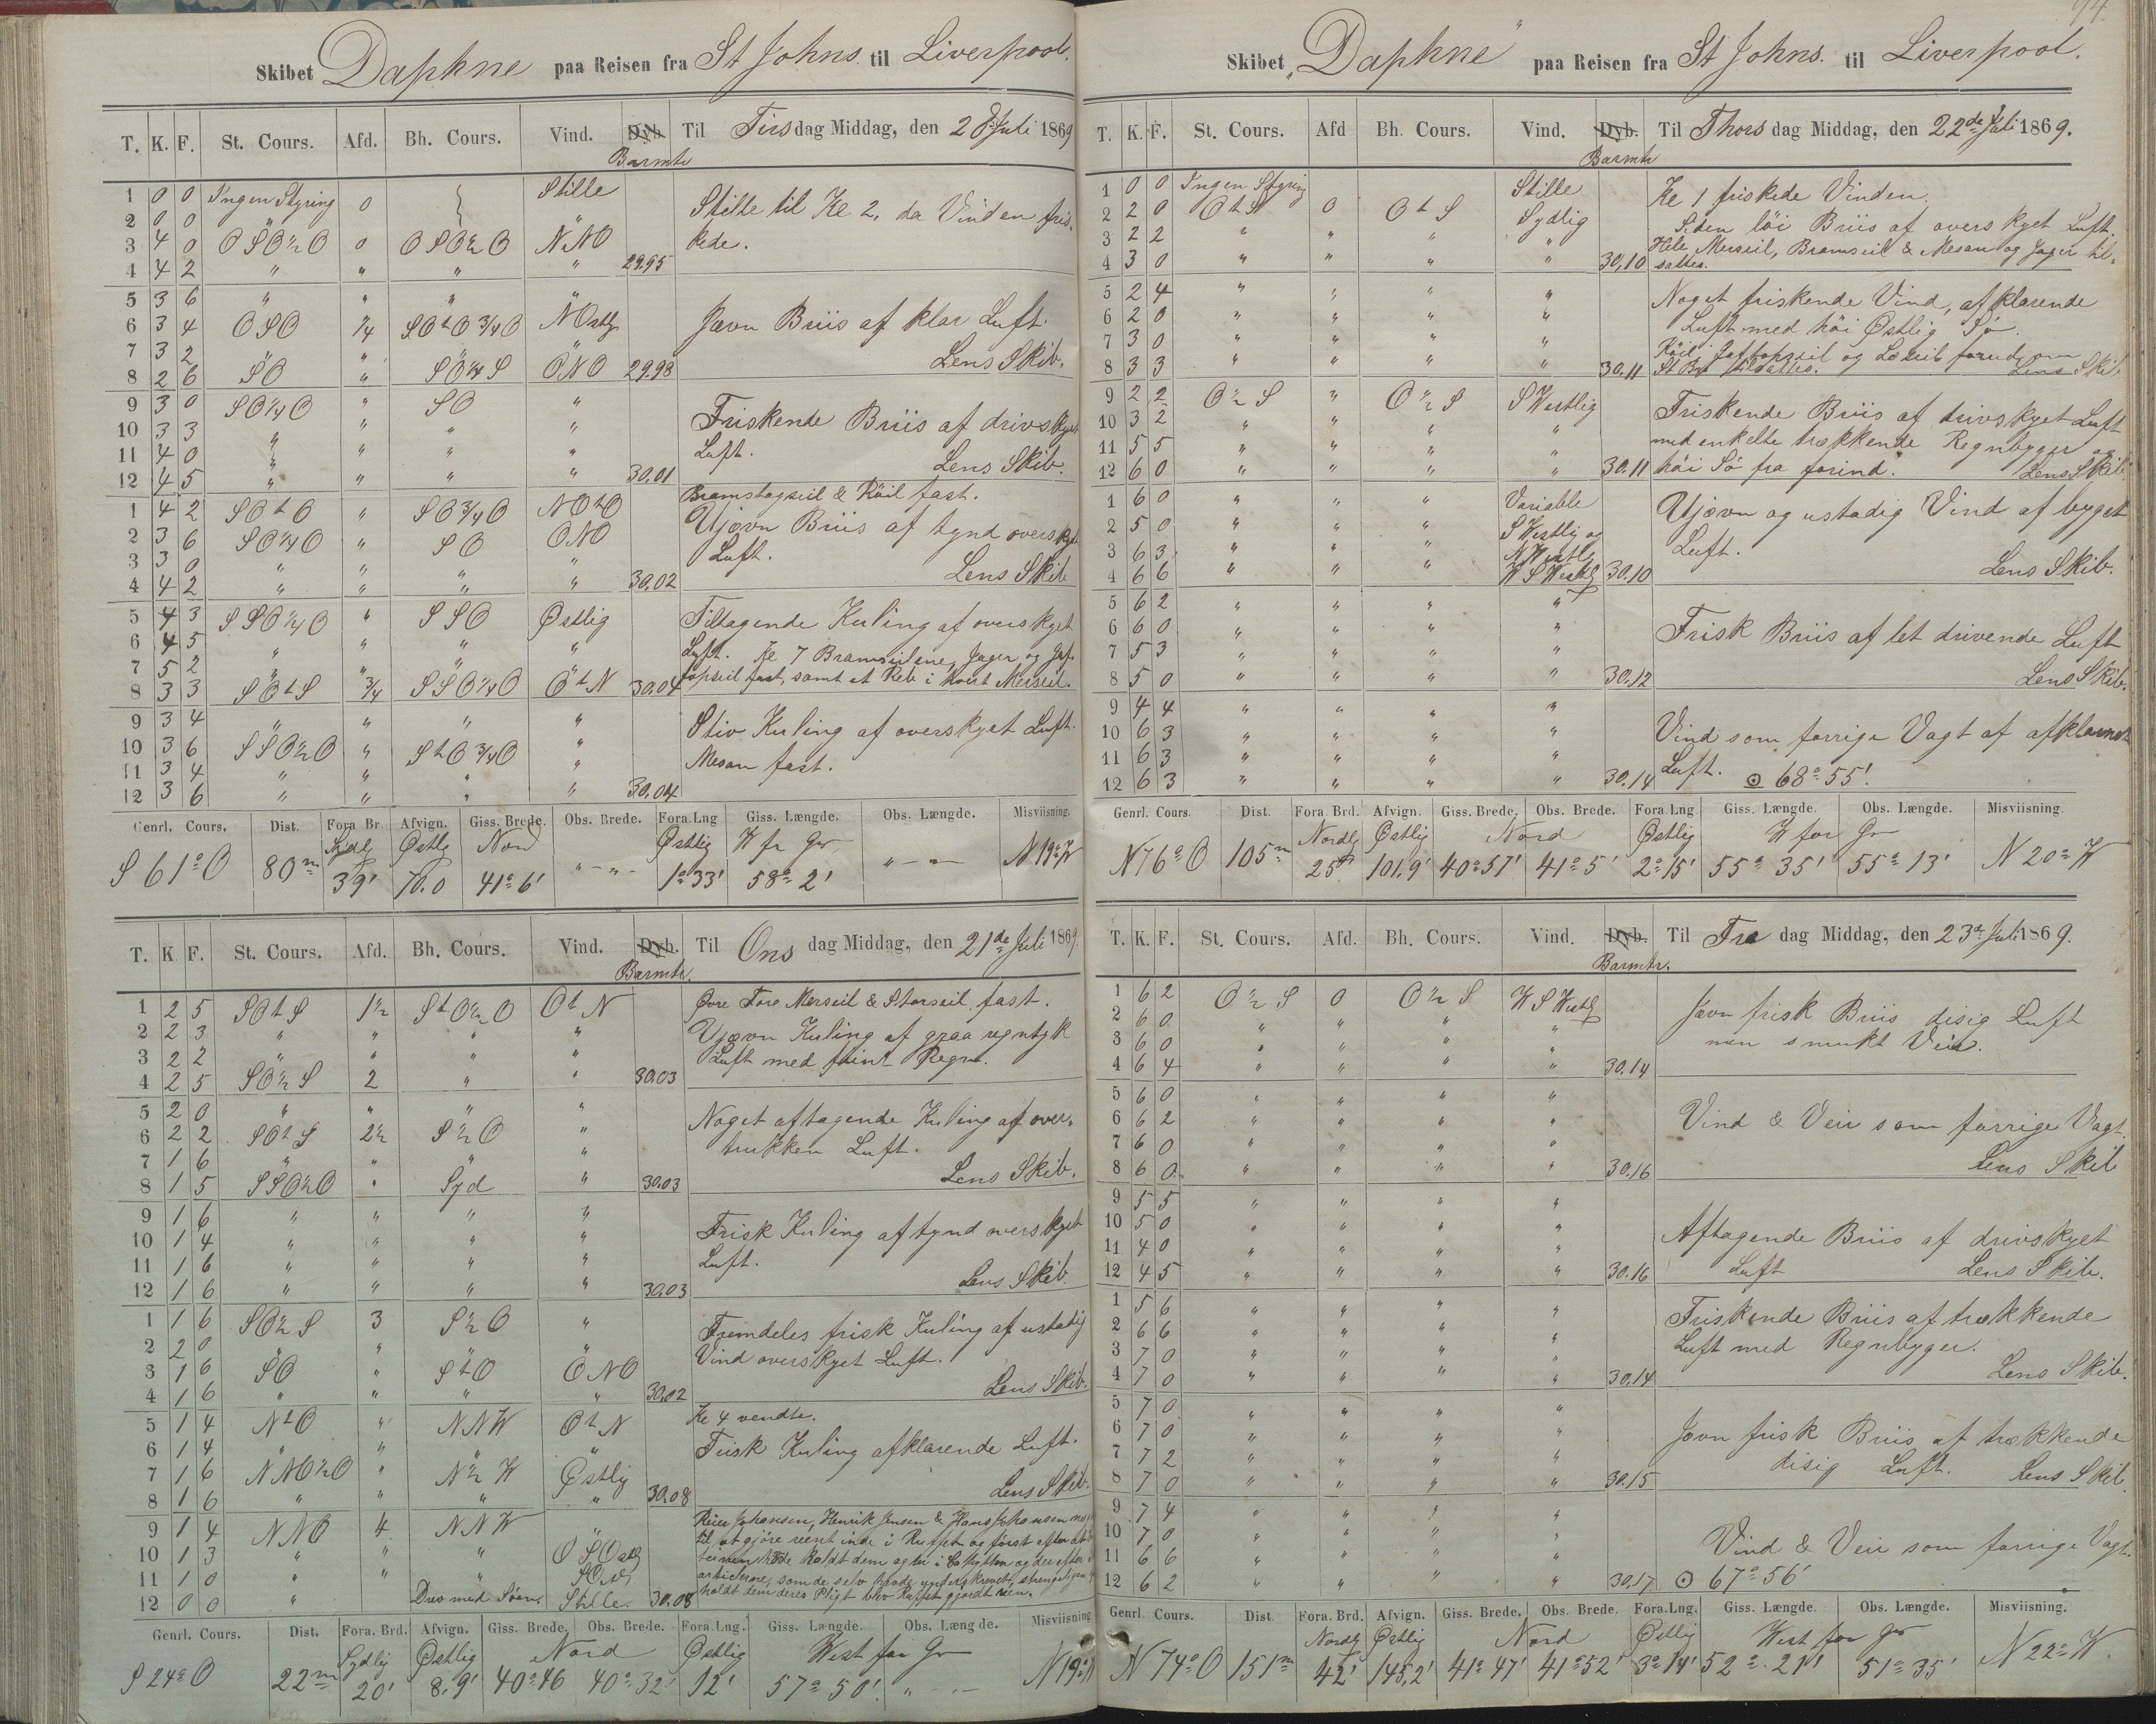 Skibet Daphne paa Reisen fra St Johns til Liverpool.
T. K. F. St. Cours. Afd. Bh. Cours. Vind. Dyb. Til Tirsdag Middag, den 20 Juli 1869
Barmtr
1 0 0 Ingen Styring 0 Stille
2 0 0 " "
3 4 0 OSO½O 0 OSO½O NNO
4 4 2 " " " " 29.95
Stille til Kl 2, da Vinden fris-
kede.
5 3 6 " " " "
6 3 4 OSO ¼ SOtO¾O NOstlg
7 3 2 " " " "
8 2 6 SO " SO¼S ONO 29.98
Jævn Briis af klar Luft.
Lens Skib.
9 3 0 SO¼O " SO "
10 3 3 " " " "
11 4 0 " " " "
12 4 5 " " " " 30.01
Friskende Briis af drivskyet
Luft.
Lens Skib.
1 4 2 SOtO " SO¾O NOtO
2 3 6 SO¼O " SO ONO
3 3 0 " " " "
4 4 2 " " " " 30.02
Bramstagseil & Röil fast.
Ujævn Briis af tynd overskyet
Luft.
Lens Skib
5 4 3 SSO¼O " SSO Østlig
6 4 5 " " " "
7 5 2 " " " "
8 3 3 SOtS ¾ SSO¼O OtN 30.04
Tiltagende Kuling af overskyet
Luft. Kl 7 Bramseilene, Jager og Gaf-
topseil fast, samt et Reb i hvert Merseil.
9 3 4 " " " "
10 3 6 SSO½O " StO¾O "
11 3 4 " " " "
12 3 6 " " " " 30.04
Stiv Kuling af overskyet Luft.
Mesan fast.
Genrl. Cours. Dist. Fora Br. Afvign. Giss. Brede. Obs. Brede. Fora Lng Giss. Længde. Obs. Længde. Misviisning.
Sydlg Østlg Nord Østlig W fr Gr
S 61° O 80m 39' 70.0 41° 6' " - " - 1° 33' 58° 2' " - " N 19° W
T. K. F. St. Cours. Afd. Bh. Cours. Vind. Dyb. Til Ons dag Middag, den 21de Juli 1869
Barmtr.
1 2 5 SOtS 1½ StO½O OtN
2 2 3 " " " "
3 2 2 " " " "
4 2 5 SO½S 2 " " 30.03
Øvre Fore Merseil & Storseil fast.
Ujævn Kuling af graa regntyk
Luft med fiint Regn.
5 2 0 " " " "
6 2 2 SOtS 2½ S½O "
7 1 6 " " " "
8 1 5 SSO½O " Syd " 30.03
Noget aftagende Kuling af over-
trukken Luft.
Lens Skib.
9 1 6 " " " "
10 1 4 " " " "
11 1 6 " " " "
12 1 6 " " " " 30.03
Frisk Kuling af tynd overskyet
Luft.
Lens Skib.
1 1 6 SO½S 3 S½O "
2 2 0 " " " "
3 1 6 SO " StO ONO
4 1 6 " " " " 30.02
Fremdeles frisk Kuling af ustadig
Vind overskyet Luft.
Lens Skib.
5 1 4 NtO " NNW OtN
6 1 4 " " " "
7 1 6 NNO½O " N½W Østlig
8 1 6 " " " " 30.08
Kl 4 vendte.
Frisk Kuling afklarende Luft.
Lens Skib.
9 1 4 NNO 4 NNW "
10 1 3 " " " OSOstlg
11 1 0 " " "
12 0 0 " Drev med Søen. Stille. 30.08
Johansen, Henrik Jensen & Hans Johansen
til at gjöre reent inde i Ruffet og först efter at
havde kaldt dem agter i Cahytten og der efter
articlerne, som de selv havde underskrevet, strengeligen
holdt dem deres Pligt blev Ruffet gjordt reen.
Genrl. Cours. Dist. Fora. Brd. Afvign. Giss. Brede. Obs. Brede. Fora.Lng. Giss. Længde. Obs. Længde. Misviisning
Sydlig Østlig Nord Østlig West for Gr
S 24° O 22m 20' 8.9' 40° 46 40° 32' 12' 57° 50' " - " N 19°
Skibet "Daphne" paa Reisen fra St Johns. til Liverpool.
T. K. F. St. Cours. Afd Bh. Cours. Vind. Dyb. Til Thors dag Middag, den 22de Juli 1869.
Barmtr
1 0 0 Ingen Styring Stille
2 2 0 OtS 0 OtS Sydlig
3 2 2 " " " "
4 3 0 " " " " 30,10
Kl 1 friskede Vinden.
Siden löi Briis af overskyet Luft.
Hele Merseil, Bramseil & Mesan og Jager til-
sattes.
5 2 4 " " " "
6 2 0 " " " "
7 3 0 " " " "
8 3 3 " " " " 30.11
Noget friskende Vind, afklarende
Luft med höi Østlig Sö.
Röil, Gaftopseil og Læseil forud om
St B tilsattes. Lens Skib
9 2 2 O½S " O½S SWestlig
10 3 2 " " " "
11 5 5 " " " "
12 6 0 " " " " 30.11
Friskende Briis af drivskyet Luft
med enkelte trækkende Regnbyger og
höi Sö fra forind. Lens Skib
1 6 0 " " " Variable
2 5 0 " " " SWestlig og
3 6 3 " " " NWestlig
4 6 6 " " " WSWestlg 30.10
Ujævn og ustadig Vind af byget
Luft.
Lens Skib.
5 6 2 " " " "
6 6 0 " " " "
7 5 3 " " " "
8 5 0 " " " " 30.12
Frisk Briis af let drivende Luft
Lens Skib.
9 4 4 " " " "
10 6 3 " " " "
11 6 3 " " " "
12 6 3 " " " " 30.14
Vind som forrige Vagt af afklarende
Luft. ⊙ 68° 55'.
Genrl. Cours. Dist. Fora. Brd. Afvign. Giss. Brede. Obs. Brede. Fora.Lng Giss. Længde. Obs. Længde. Misviisning
Nordlg Østlig Nord Østlig W for Gr
N 76° O 105m 25' 101.9' 40° 57' 41° 5' 2° 15' 55° 35' 55° 13' N 20° W
T. K. F. St. Cours. Afd. Bh. Cours. Vind. Dyb. Til Fre dag Middag, den 23de Juli 1869.
Barmtr.
1 6 2 O½S 0 O½S WSWestlg
2 6 0 " " " "
3 6 0 " " " "
4 6 4 " " " " 30.14
Jævn frisk Briis disig Luft
men smukt Veir.
5 6 0 " " " "
6 6 2 " " " "
7 6 0 " " " "
8 6 0 " " " " 30.16
Vind & Veir som forrige Vagt.
Lens Skib
9 5 5 " " " "
10 5 0 " " " "
11 4 0 " " " "
12 4 5 " " " " 30.16
Aftagende Briis af drivskyet
Luft Lens Skib.
1 5 6 " " " "
2 6 6 " " " "
3 7 0 " " " "
4 7 0 " " " " 30.14
Friskende Briis af trækkende
Luft med Regnbyger.
Lens Skib.
5 7 0 " " " "
6 7 0 " " " "
7 7 2 " " " "
8 7 0 " " " " 30.15
Jævn frisk Briis af trækkende
disig Luft. Lens Skib.
9 7 4 " " " "
10 7 0 " " " "
11 6 6 " " " "
12 6 2 " " " " 30.17
Vind & Veir som forrige Vagt.
⊙ 67° 56'
Genrl. Cours. Dist. Fora. Brd. Afvign. Giss. Brede. Obs. Brede. Fora.Lng. Giss. Længde. Obs. Længde. Misviisning.
Nordlg Østlig Nord Østlig West for Gr
N 74° O 151m 42' 145,2' 41° 47' 41° 52' 3° 14' 52° 21' 51° 35' N 22° W.